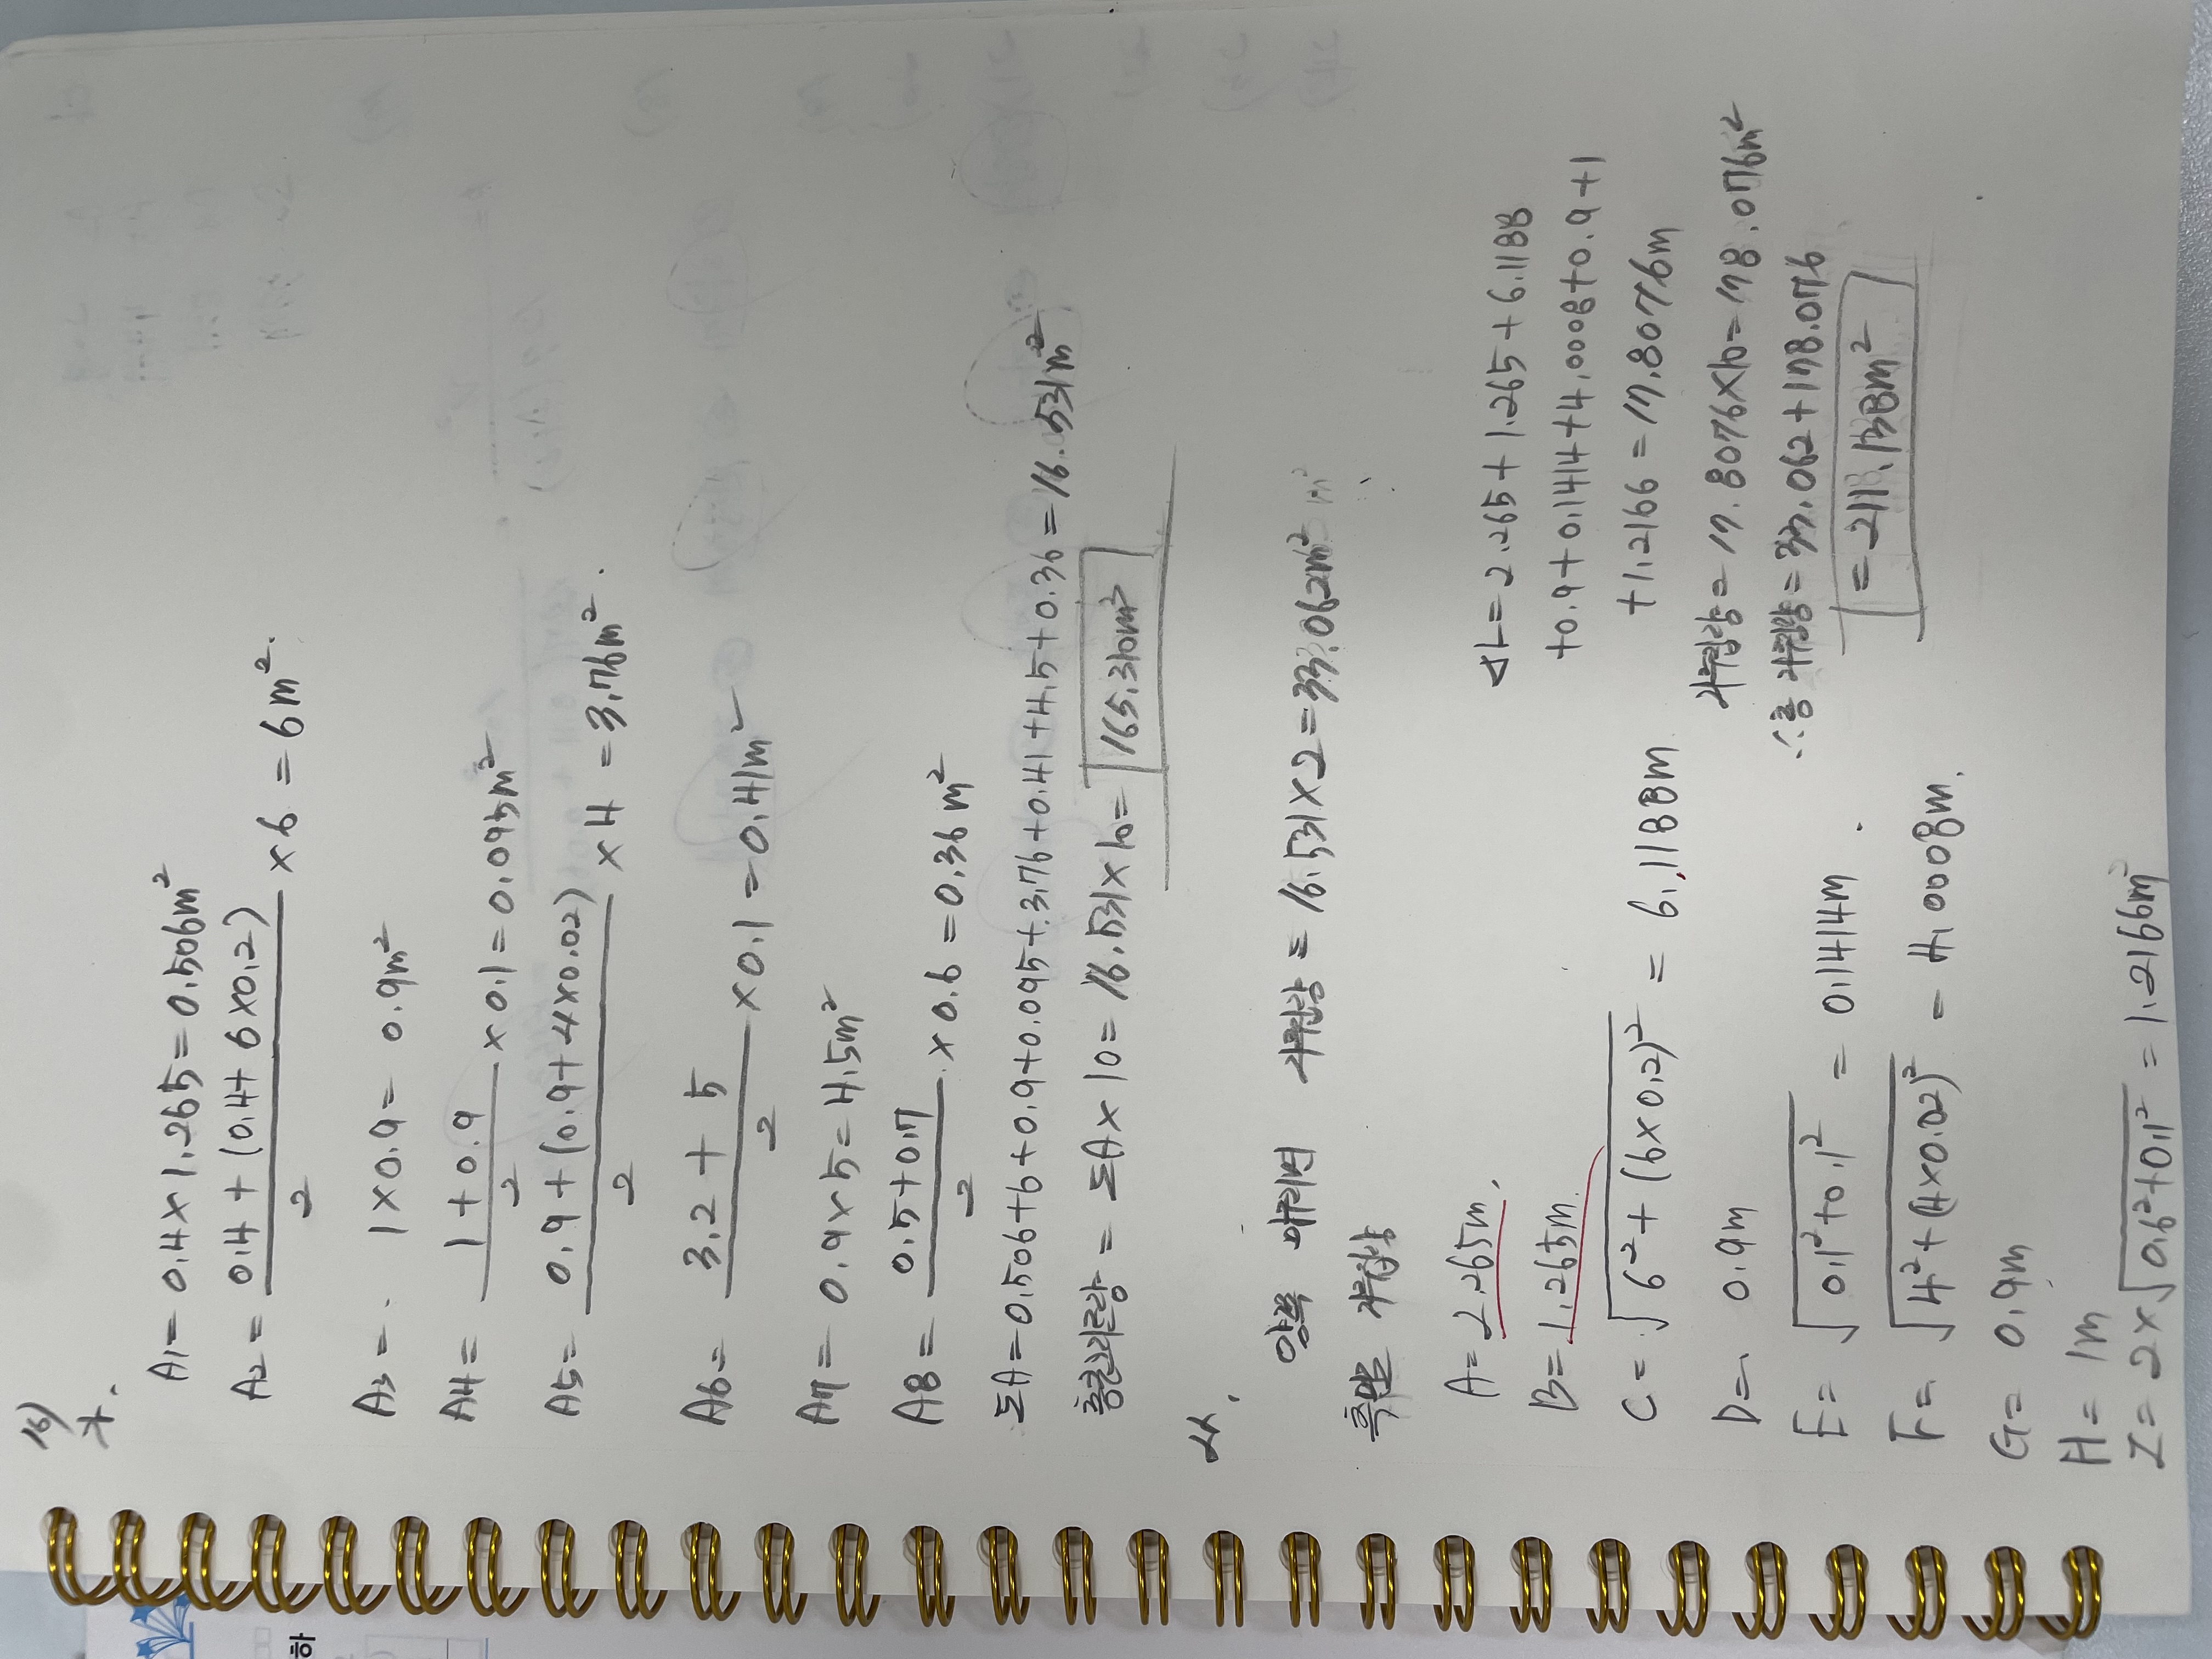 16)
가.
A1 = 0.4 × 1.265 = 0.506m²
A2 = (0.4 + (0.4 + 6 × 0.2)) / 2 × 6 = 6m².
A3 = 1 × 0.9 = 0.9m²
A4 = (1 + 0.9) / 2 × 0.1 = 0.095m²
A5 = (0.9 + (0.9 + 4 × 0.02)) / 2 × 4 = 3.76m².
A6 = (3.2 + 5) / 2 × 0.1 = 0.41m²
A7 = 0.9 × 5 = 4.5m²
A8 = (0.5 + 0.7) / 2 × 0.6 = 0.36m²
ΣA = 0.506 + 6 + 0.9 + 0.095 + 3.76 + 0.41 + 4.5 + 0.36 = 16.531m²
총콘크리트량 = ΣA × 10 = 16.531 × 10 = 165.310m³
나.
양쪽 마구리면 거푸집량 = 16.531 × 2 = 33.062m²
측면 거푸집량
A = 2.265m.
B = 1.265m.
C = √(6² + (6 × 0.2)²) = 6.1188m
D = 0.9m
E = √(0.1² + 0.1²) = 0.1414m.
F = √(4² + (4 × 0.02)²) = 4.0008m.
G = 0.9m
H = 1m
I = 2 × √(0.6² + 0.1²) = 1.2166m
ΣL = 2.265 + 1.265 + 6.1188
+ 0.9 + 0.1414 + 4.0008 + 0.9 + 1
+ 1.2166 = 17.8076m
거푸집량 = 17.8076 × 10 = 178.076m²
∴ 총 거푸집량 = 33.062 + 178.076
= 211.138m²
하